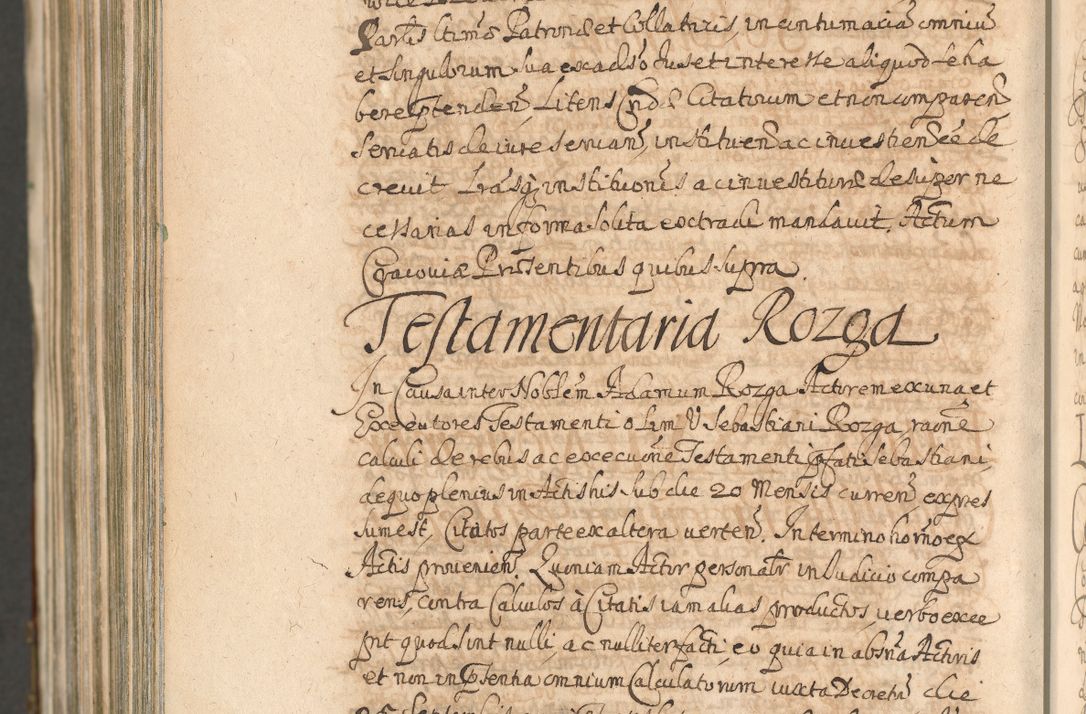 Partis ltimæ Patronæ et Collatricis, in contumaciã omniũ
et singulorum sua ex adso Jus et interesse aliquod se ha
bere ptenden̄ Litens Cnd & Citatorum et non comparen̄
servatis de iure servan̄, instituen̄ ac investien̄ eē de
crevit Lrasq̨ institutionis ac investituræ desuper ne
cessarias in forma solita extradi mandavit. Actum
Cracoviæ Præsentibus quibus supra.
Testamentaria Rozga
In Causa inter Noblem Adamum Rozga Actorem ex una et
Executores Testamenti olim V Sebastiani Rozga raōne
calculi de rebus ac executione Testamenti pfati Sebastiani,
de quo plenius in Actis his sub die 20 Mensis curren̄ expres
sum est, Citatos parte ex altera verten̄. In termino horno ex
Actis provenien̄. Quoniam Actor personalr in Judicio compa
rens, contra Calculos à Citatis iam alias productos, verbo exce
pit quod sint nulli, ac nulliter facti, eo quia in absñã Actoris
et non in pñtentia omnium Calculatorum iuxta Decretū die